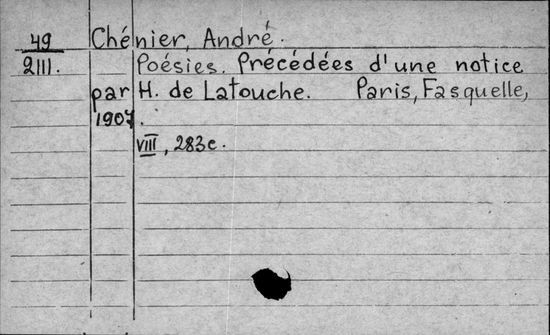 49 Chénier, André.
2111. Poésies. Précédées d'une notice
par H. de Latouche. Paris, Fasquelle,
1907.
VIII, 283c.